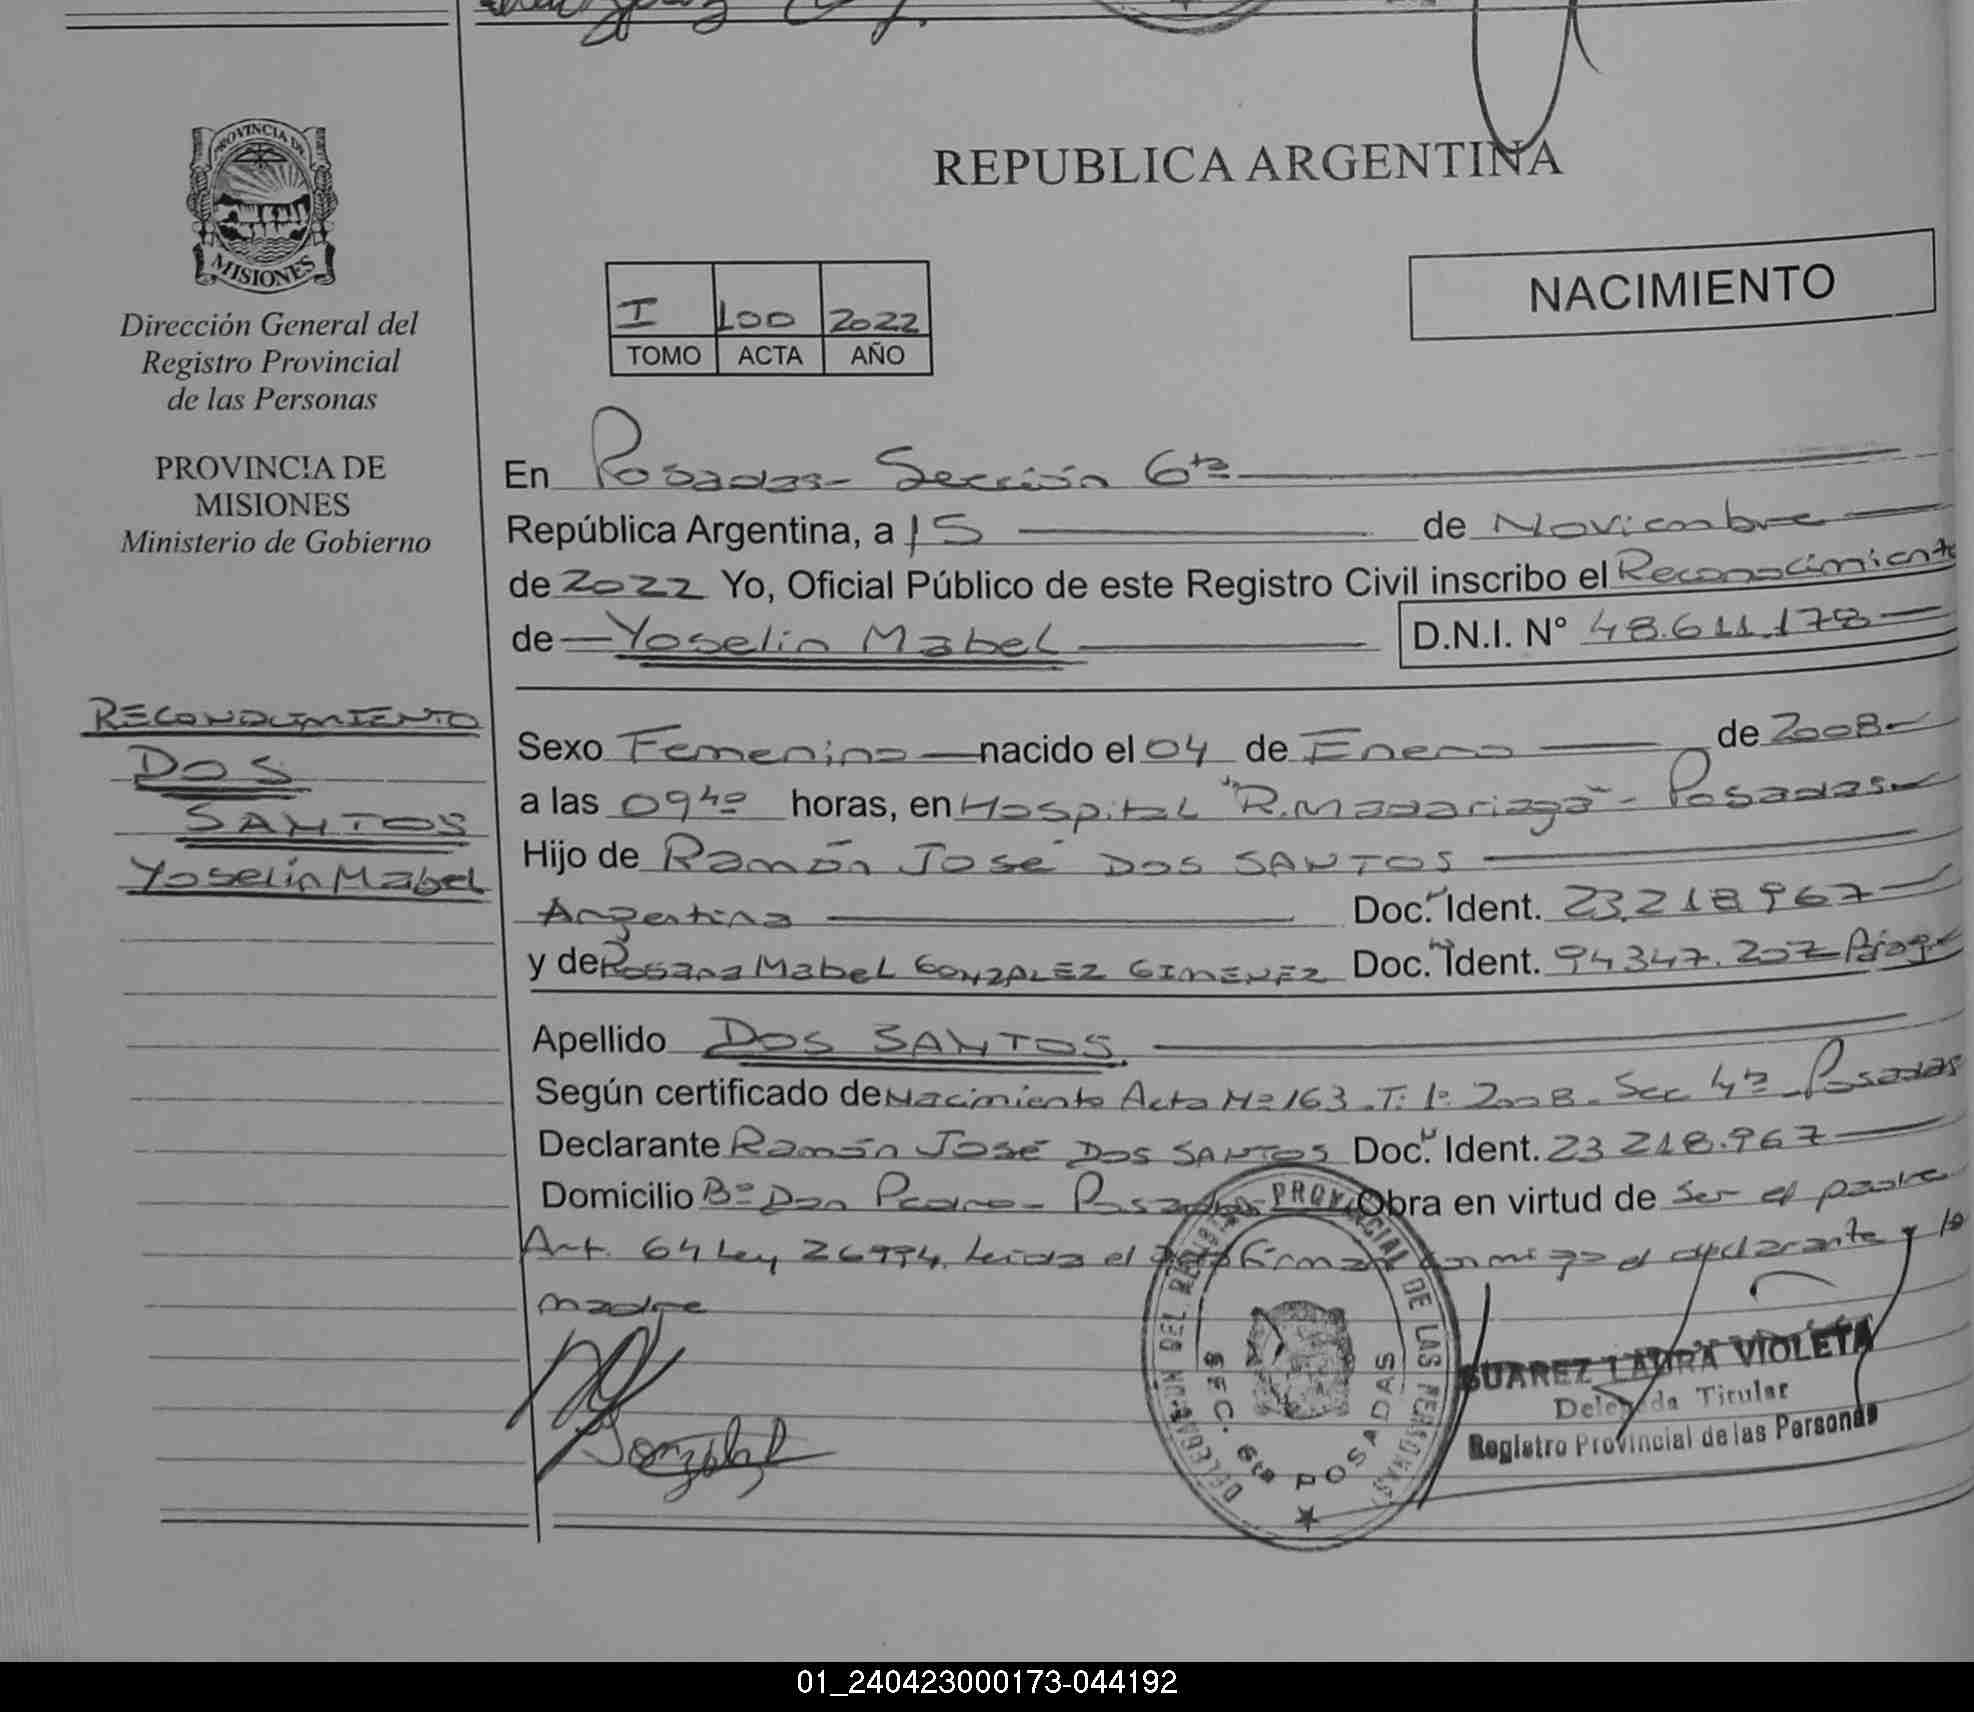 PROVINCIA DE
MISIONES
Dirección General del
Registro Provincial
de las Personas
PROVINCIA DE
MISIONES
Ministerio de Gobierno
RECONOCIMIENTO
DOS
SANTOS
Yoselin Mabel
REPUBLICA ARGENTINA
NACIMIENTO
I 100 2022
TOMO ACTA AÑO
En Posadas - Sección 6ta
República Argentina, a 15 de Noviembre
de 2022 Yo, Oficial Público de este Registro Civil inscribo el Reconocimiento
de Yoselin Mabel D.N.I. N° 48.611.178
Sexo Femenino nacido el 04 de Enero de 2008
a las 0940 horas, en Hospital "R. Madariaga" - Posadas
Hijo de Ramón José DOS SANTOS
Argentina Doc. Ident. 23.218.967
y de Rosana Mabel GONZALEZ GIMENEZ Doc. Ident. 94.347.207
Apellido DOS SANTOS.
Según certificado de Nacimiento Acta Nº 163. T: 1º 2008. Sec 4ta Posadas
Declarante Ramón José DOS SANTOS Doc. Ident. 23 218.967
Domicilio Bº Don Pedro - Posadas Obra en virtud de ser el padre
Art. 64 Ley 26994. Leida el acta firman conmigo el declarante y la
madre
DELEGACION DEL REGISTRO PROVINCIAL DE LAS PERSONAS
SEC. 6ta POSADAS
SUAREZ LAURA VIOLETA
Delegada Titular
Registro Provincial de las Personas
01_240423000173-044192